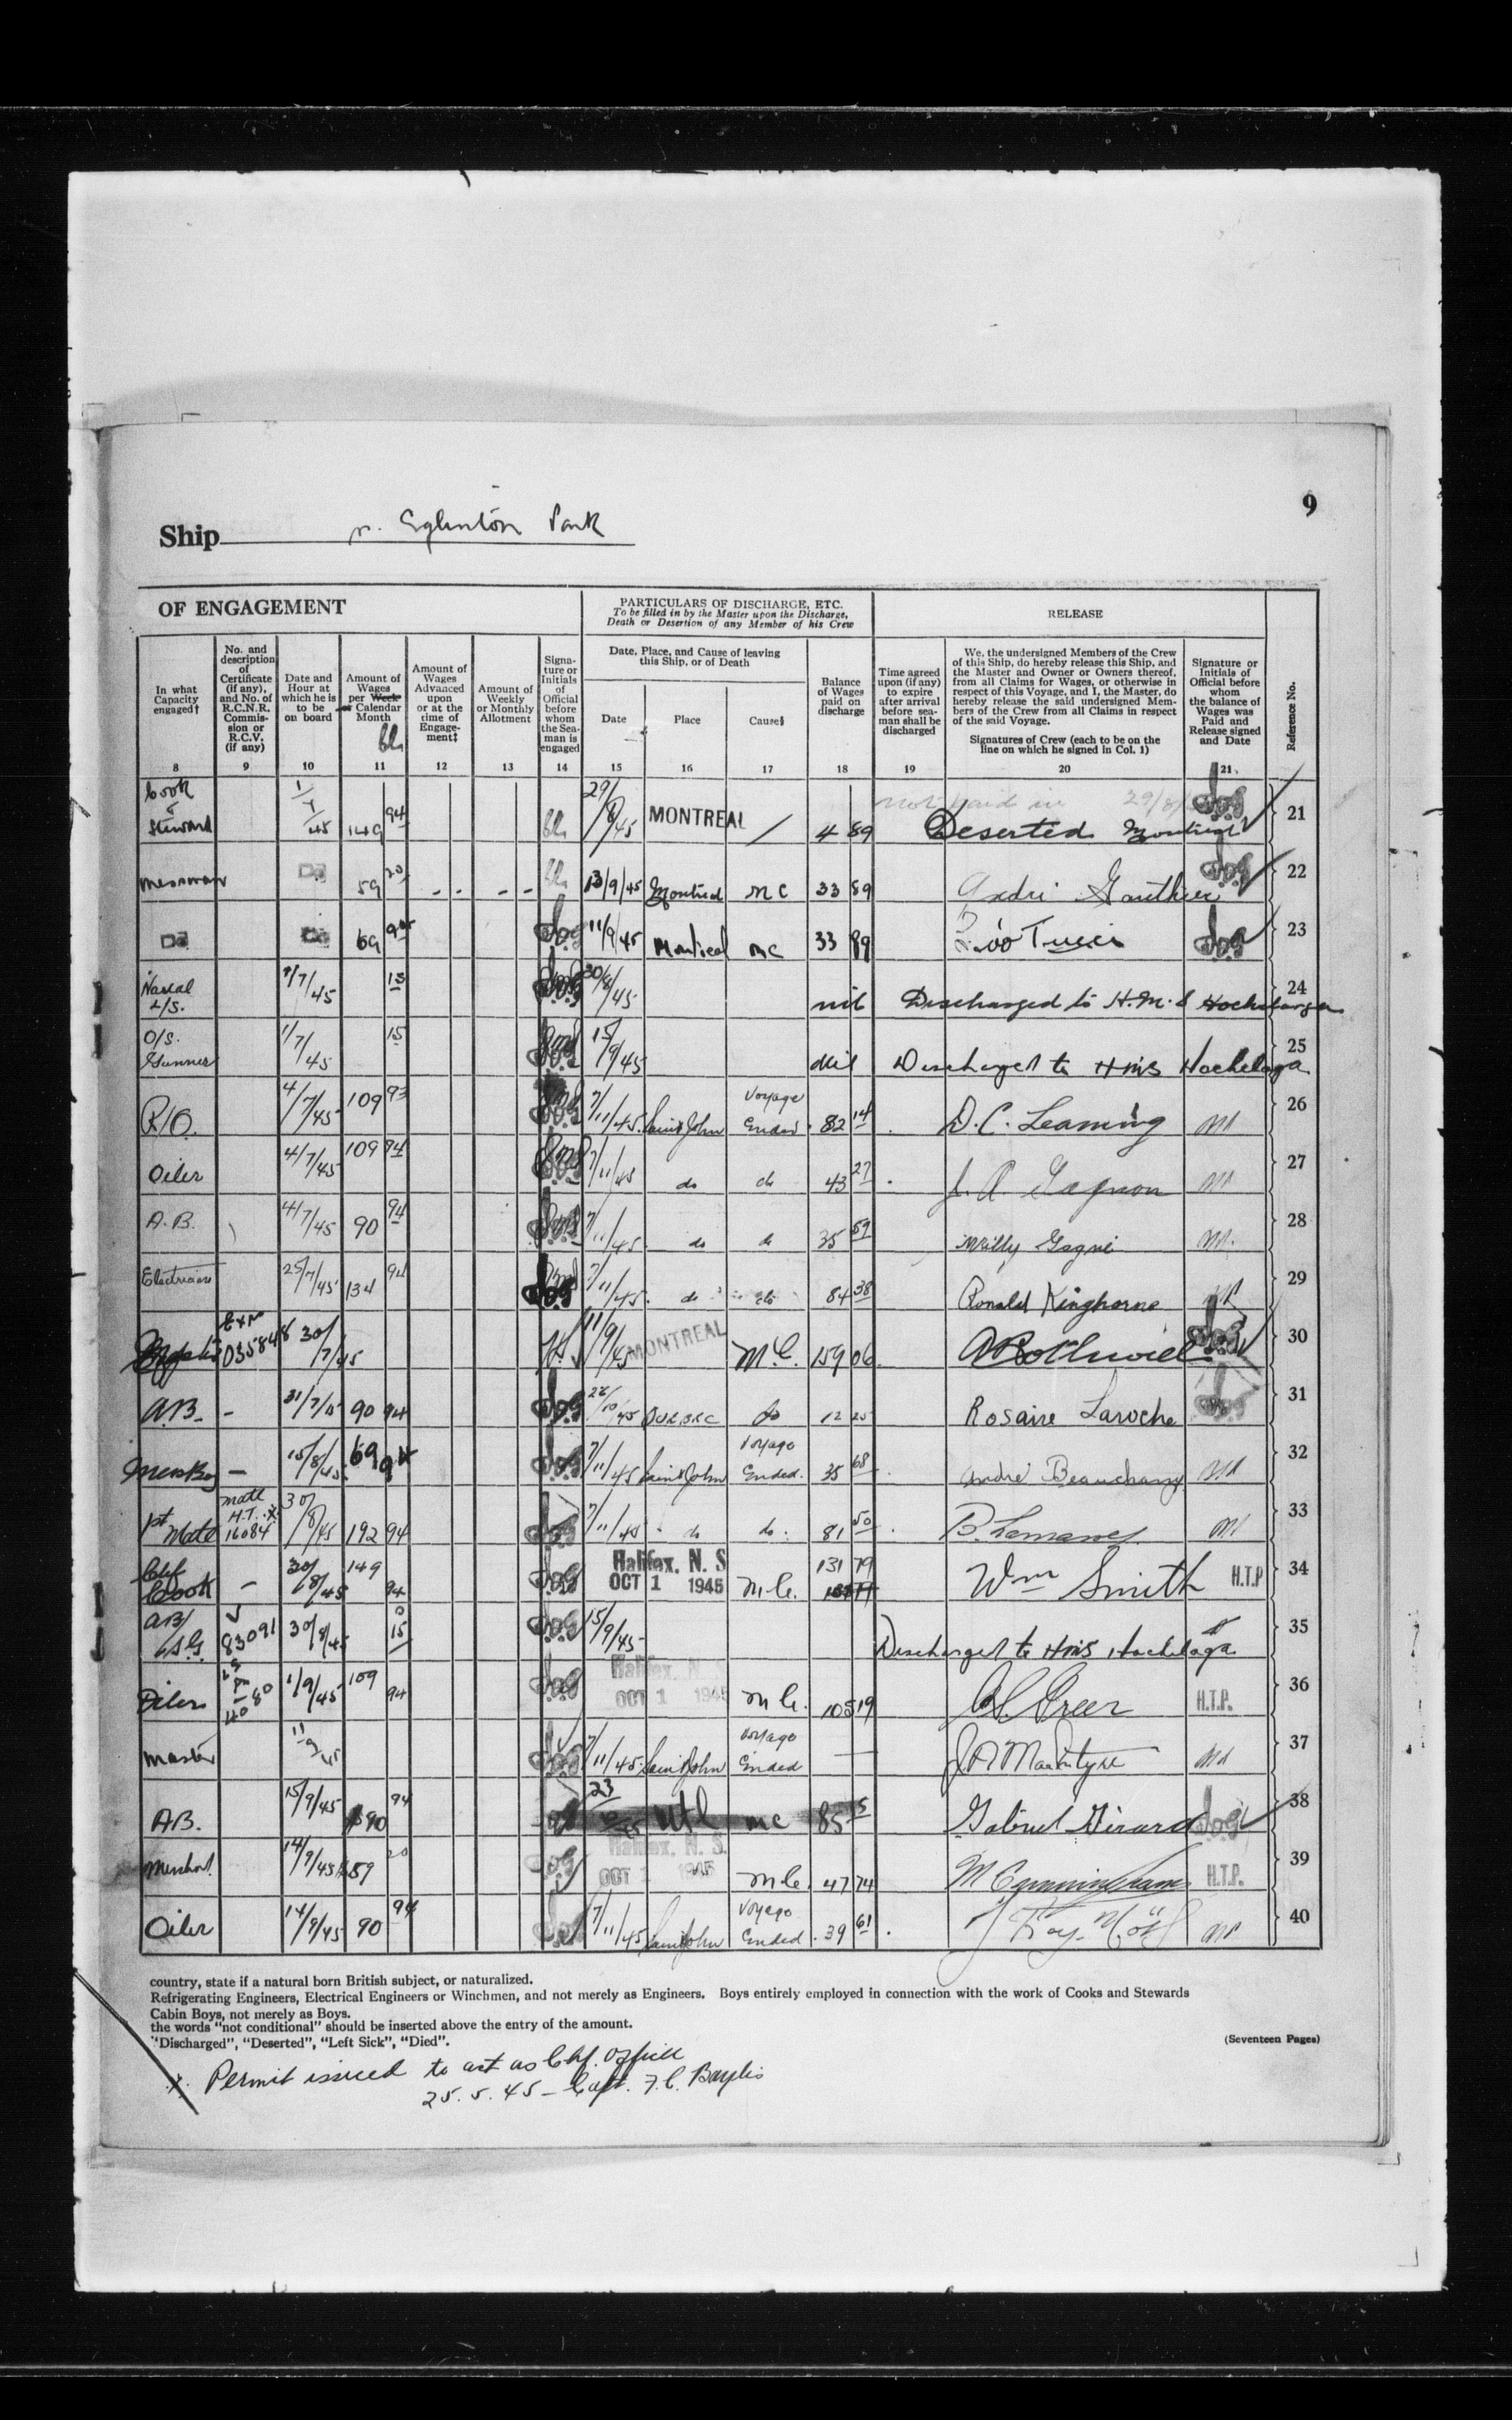 9
Ship Eglinton Park
OF ENGAGEMENT
PARTICULARS OF DISCHARGE, ETC.
To be filled in by the Master upon the Discharge,
Death or Desertion of any Member of his Crew
RELEASE
In what
Capacity
engaged†
8
No. and
description
of
Certificate
(if any),
and No. of
R.C.N.R.
Commis-
sion or
R.C.V.
(if any)
9
Date and
Hour at
which he is
to be
on board
10
Amount of
Wages
per Week
or Calendar
Month
11
Amount of
Wages
Advanced
upon
or at the
time of
Engage-
ment‡
12
Amount of
Weekly
or Monthly
Allotment
13
Signa-
ture or
Initials
of
Official
before
whom
the Sea-
man is
engaged
14
Date, Place, and Cause of leaving
this Ship, or of Death
Date
15
Place
16
Cause§
17
Balance
of Wages
paid on
discharge
18
Time agreed
upon (if any)
to expire
after arrival
before sea-
man shall be
discharged
19
We, the undersigned Members of the Crew
of this Ship, do hereby release this Ship, and
the Master and Owner or Owners thereof,
from all Claims for Wages, or otherwise in
respect of this Voyage, and I, the Master, do
hereby release the said undersigned Mem-
bers of the Crew from all Claims in respect
of the said Voyage.
Signatures of Crew (each to be on the
line on which he signed in Col. 1)
20
Signature or
Initials of
Official before
whom
the balance of
Wages was
Paid and
Release signed
and Date
21
Reference No.
Cook & Steward 1/7/45 149 94 29/8/45 MONTREAL / 4 89 not paid in 29/8/ Deserted Montreal 21
Messman Do 59 20 - - - - 13/9/45 Montreal M C 33 89 Andri Gauthier 22
Do Do 69 94 11/9/45 Montreal MC 33 89 Tucci 23
Naval L/S. 1/7/45 15 30/8/45 nil Discharged to H.M.S Hochelaga 24
O/S. Gunner 1/7/45 15 15/9/45 Nil Discharged to HMS Hochelaga 25
R/O. 4/7/45 109 93 7/11/45 Saint John Voyage Ended 82 14 D. C. Leaming 26
Oiler 4/7/45 109 94 7/11/45 do do 43 27 J. A. Gagnon 27
A.B. 4/7/45 90 94 7/11/45 do do 35 59 Willy Gagné 28
Electrician 25/7/45 134 94 7/11/45 do do 84 38 Ronald Kinghorne 29
035848 30/7/45 11/9/45 MONTREAL M.C. 159 06 30
A.B. - 31/7/45 90 94 22/10/45 QUEBEC do 12 25 Rosaire Laroche 31
Mess Boy - 15/8/45 69 94 7/11/45 Saint John Voyage Ended. 35 68 André Beauchamp 32
1st Mate Mate H.T. x 16084 30/8/45 192 94 7/11/45 do do. 81 50 33
Chf Cook - 30/8/45 149 94 Halifax, N. S OCT 1 1945 M.C. 131 79 Wm Smith H.T.P 34
AB/ S.G. V 83091 30/8/45 0 15 15/9/45 Discharged to HMS Hochelaga 35
Oiler 1/9/45 109 94 Halifax, N. S OCT 1 1945 M.C. 105 19 H.T.P. 36
Master 11/9/45 7/11/45 Saint John Voyage Ended — J A MacIntyre 37
A.B. 15/9/45 $90 94 23 Mtl MC 85 Gabriel Girard 38
14/9/45 59 20 Halifax, N. S. OCT 1 1945 M.C. 47 74 M Cunningham H.T.P. 39
Oiler 14/9/45 90 94 7/11/45 Saint John Voyage Ended. 39 61 40
country, state if a natural born British subject, or naturalized.
Refrigerating Engineers, Electrical Engineers or Winchmen, and not merely as Engineers. Boys entirely employed in connection with the work of Cooks and Stewards
Cabin Boys, not merely as Boys.
the words "not conditional" should be inserted above the entry of the amount.
"Discharged", "Deserted", "Left Sick", "Died".
(Seventeen Pages)
x. Permit issued to act as Chf. Officer
25. 5. 45 - Capt. F. C. Baylis